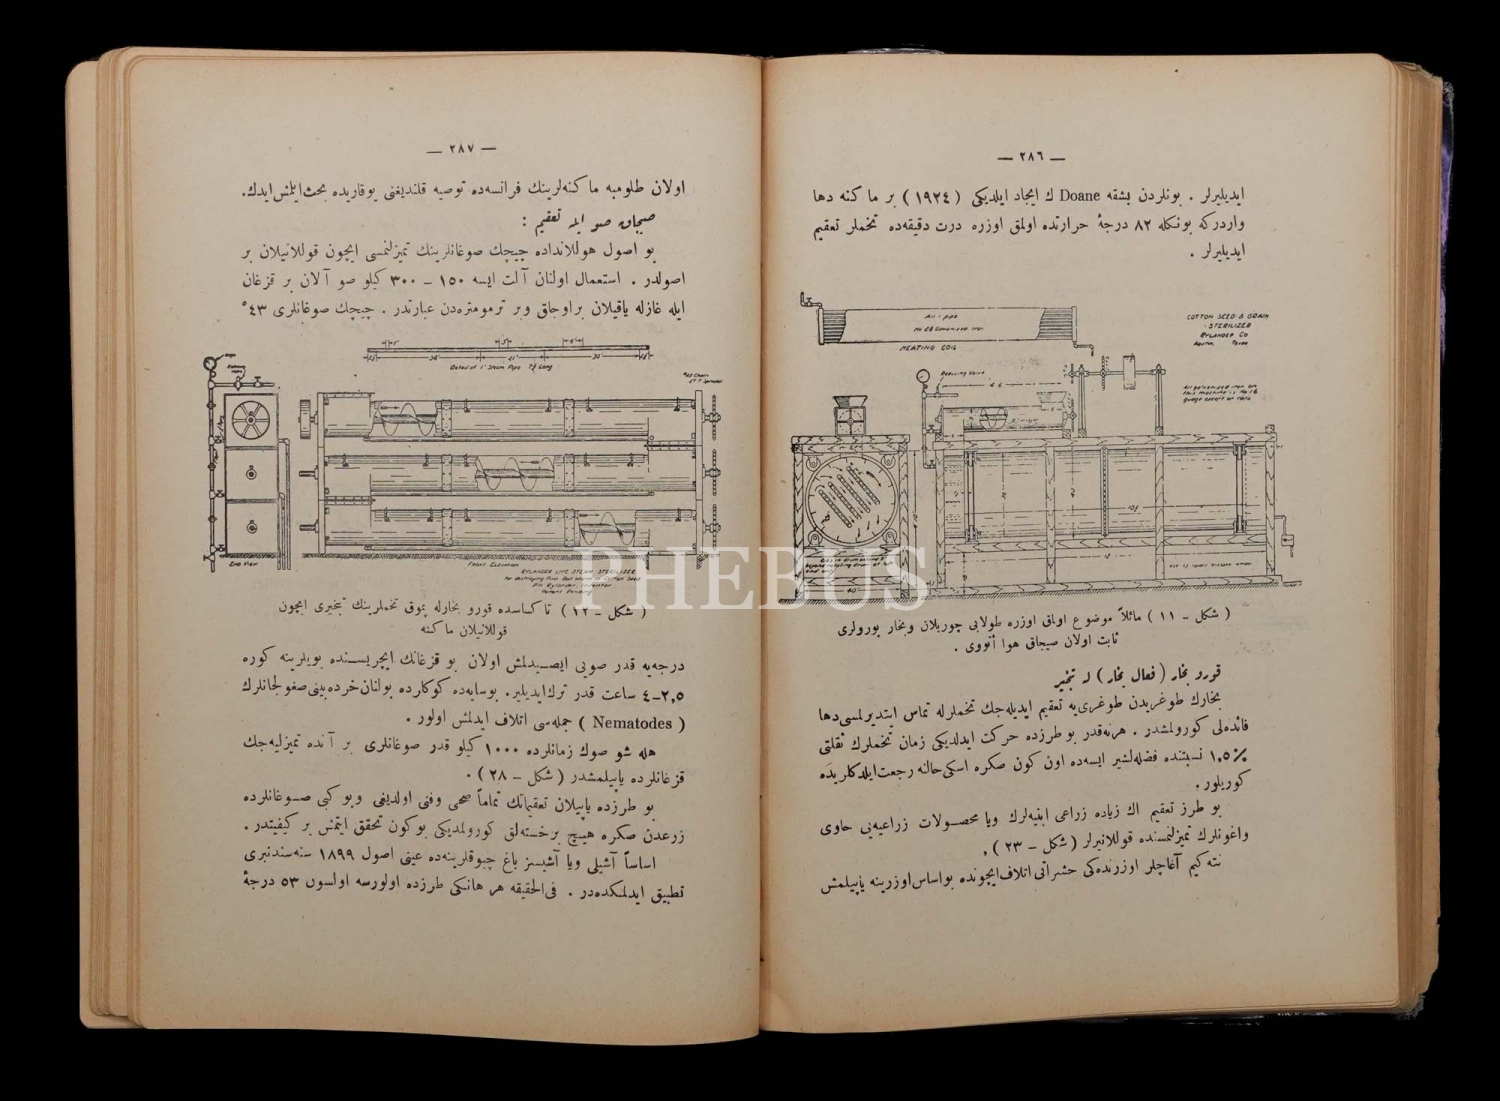 — ٢٨٦ —
ايديليرلر . بونلردن بشقه Doane ك ايجاد ايلديكى ( ١٩٢٤ ) بر ماكنه دها
واردركه بونكله ٨٢ درجهٔ حرارتده اولمق اوزره درت دقيقه‌ده تخملر تعقيم
ايديليرلر .
COTTON SEED & GRAIN
STERILIZER
RYLANDER CO
Austin, Texas
HEATING COIL
Reducing Valve
( شكل – ١١ ) مائلاً موضوع اولمق اوزره طولابى چوريلان وبخار بورولرى
ثابت اولان صيجاق هوا أتووى .
قورو بخار ( فعال بخار ) له تبخير
بخارك طوغريدن طوغرى‌يه تعقيم ايديله‌جك تخملرله تماس ايتديرلمسى دها
فائده‌لى كورولمشدر . هرنه‌قدر بو طرزده حركت ايدلديكى زمان تخملرك ثقلتى
٪ ١,٥ نسبتنده فضله‌لشير ايسه‌ده اون كون صكره اسكى حالنه رجعت ايلدكلريده
كوريلور .
بو طرز تعقيم اك زياده زراعى ابنيه‌لرك ويا محصولات زراعيه‌يى حاوى
واغونلرك تميزلنمسنده قوللانيرلر ( شكل – ٢٣ ) ,
نته‌كيم آغاچلر اوزرنده‌كى حشراتى اتلاف ايچونده بو اساس اوزرينه ياپيلمش
— ٢٨٧ —
اولان طلومبه ماكنه‌لرينك فرانسه‌ده توصيه قلنديغنى يوقاريده بحث ايلمش ايدك.
صيجاق صو ايله تعقيم :
بو اصول هوللانداده چيچك صوغانلرينك تميزلنمسى ايچون قوللانيلان بر
اصولدر . استعمال اولنان آلت ايسه ١٥٠ – ٣٠٠ كيلو صو آلان بر قزغان
ايله غازله ياقيلان براوجاق وبر ترمومتره‌دن عبارتدر . چيچك صوغانلرى ٤٣°
Detail of 1" Steam Pipe
End View
Front Elevation
RYLANDER LIVE STEAM STERILIZER
for destroying Pink Boll worm in Cotton Seed
PH Rylander, Inventor
Patent Pending
( شكل – ١٢ ) تاكساسده قورو بخارله پموق تخملرينك تبخيرى ايچون
قوللانيلان ماكنه
درجه‌يه قدر صويى ايصيدلمش اولان بو قزغانك ايچريسنده بويلرينه كوره
٢,٥-٤ ساعت قدر ترك ايديلير. بوسايه‌ده كوكلرده بولنان خرده‌بينى صغولجانلرك
( Nematodes ) جمله‌سى اتلاف ايدلمش اولور .
هله شو صوك زمانلرده ١٠٠٠ كيلو قدر صوغانلرى بر آنده تميزليه‌جك
قزغانلرده ياپيلمشدر ( شكل – ٢٨ ) .
بو طرزده ياپيلان تعقيماتك تماماً صحى وفنى اولديغى وبو كبى صوغانلرده
زرعدن صكره هيچ برخسته‌لق كورولمديكى بوكون تحقق ايتمش بر كيفيتدر .
اساساً آشيلى ويا آشيسز باغ چبوقلرينه‌ده عينى اصول ١٨٩٩ سنه‌سندنبرى
تطبيق ايدلمكده‌در . فى‌الحقيقه هر هانكى طرزده اولورسه اولسون ٥٣ درجهٔ
PHEBUS